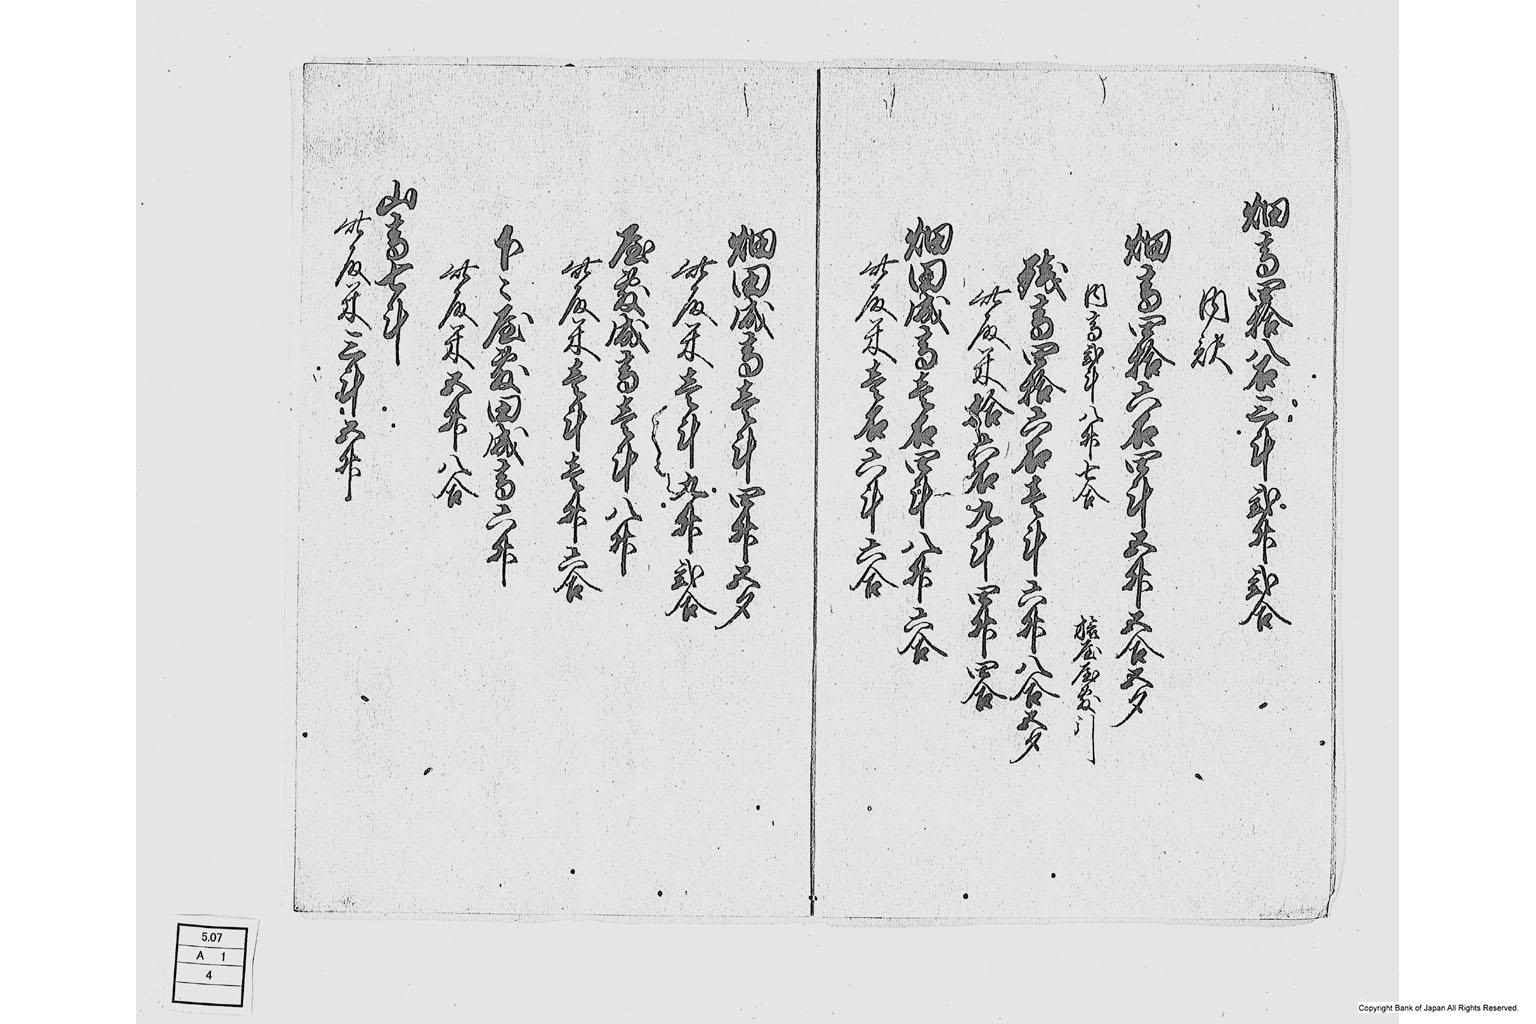 畑高四拾八石三斗弐升弐合
内訳
畑高四拾六石四斗五升五合五夕
内高弐斗八升七合 屋敷引
残高四拾六石壱斗六升八合五夕
此取米拾六石九斗四升四合
畑田成高壱石四斗八升六合
此取米壱石六斗六合
畑田成高壱斗四升五夕
此取米壱斗九升弐合
屋敷成高壱斗八升
此取米壱斗壱升六合
下々屋敷田成高六升
此取米五升八合
山高七斗
此取米三斗五升
5.07
A 1
4
Copyright Bank of Japan All Rights Reserved.